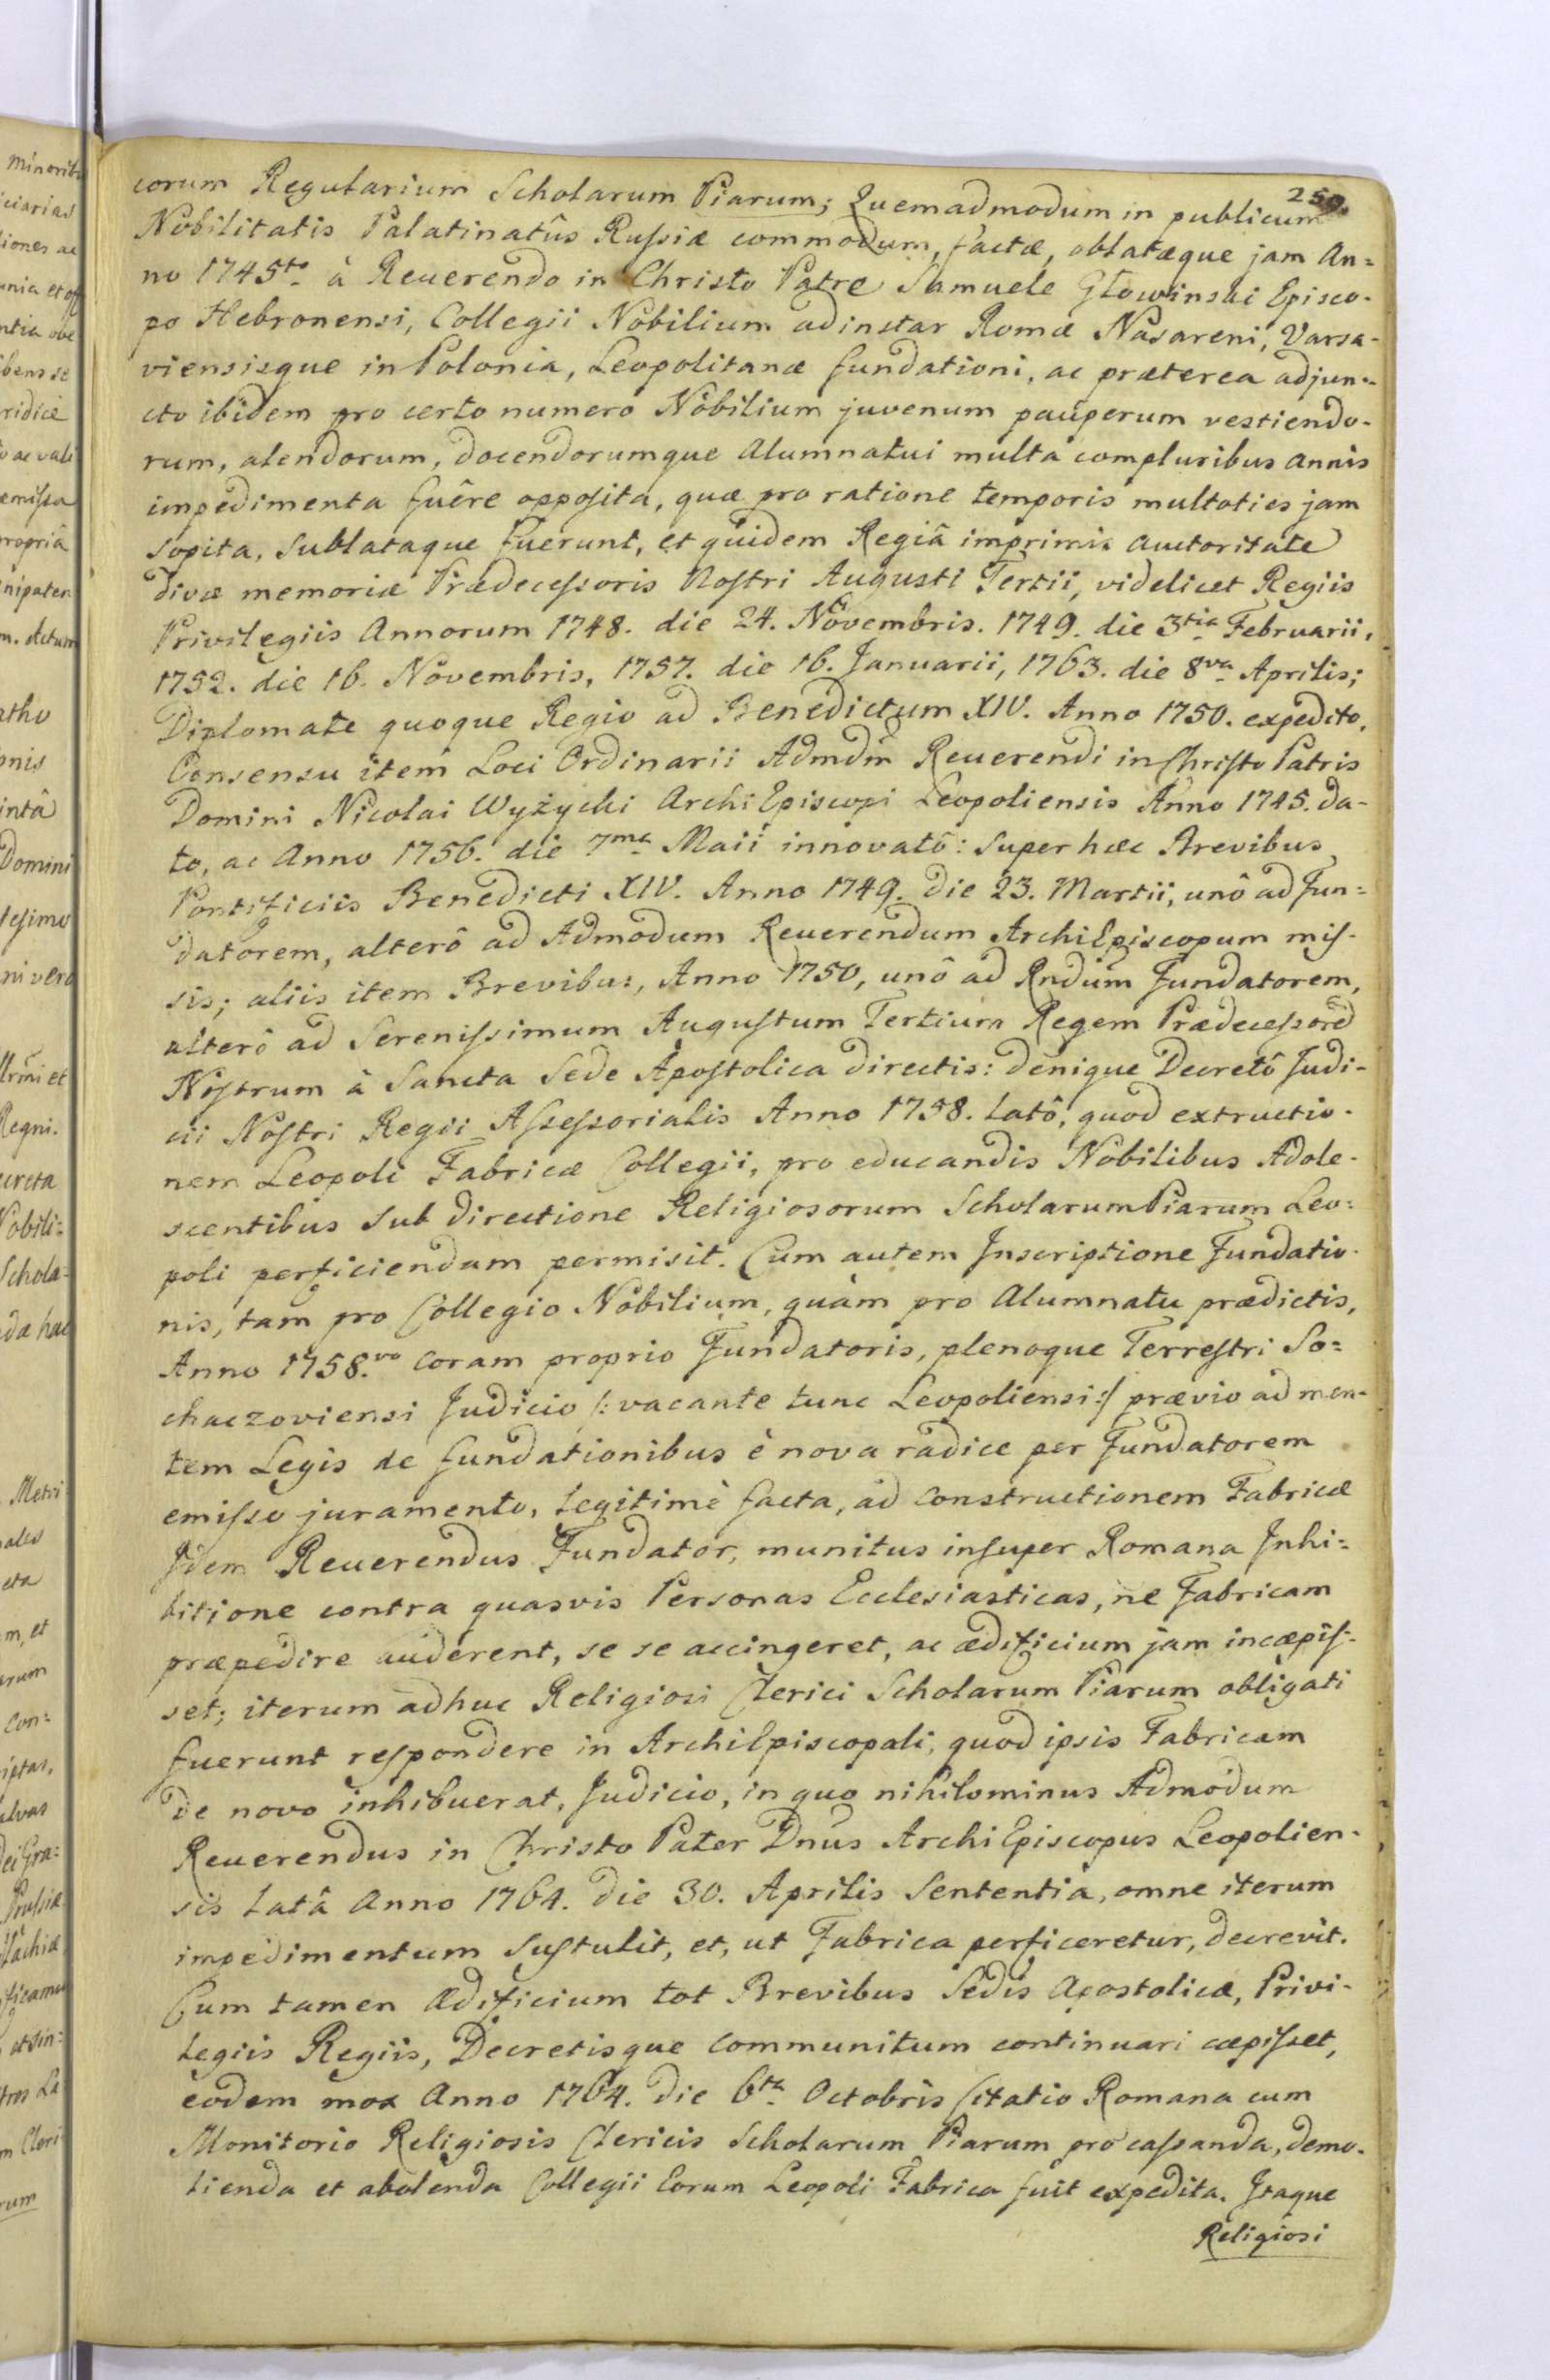 250.
corum Regularium Scholarum Piarum; Quemadmodum in publicum
Nobilitatis Palatinatûs Rußiæ commodum, factæ, oblatæque jam An=
no 1745to à Reuerendo in Christo Patre Samuele Głowinski Episco-
po Hebronensi, Collegii Nobilium adinstar Romæ Nasareni, Varsa-
viensisque in Polonia, Leopolitanæ fundationi, ac præterea adjun-
cto ibidem pro certo numero Nobilium juvenum pauperum vestiendo-
rum, alendorum, docendorumque Alumnatui multa compluribus annis
impedimenta fuêre opposita, quæ pro ratione temporis multoties jam
sopita, sublataque fuerunt, et quidem Regiâ imprimis auctoritate
divæ memoriæ Prædecessoris Nostri Augusti Tertii, videlicet Regiis
Privilegiis Annorum 1748. die 24. Novembris. 1749. die 3tia Februarii,
1752. die 16. Novembris, 1757. die 16. Januarii, 1763. die 8va Aprilis;
Diplomate quoque Regio ad Benedictum XIV. Anno 1750. expedito,
Consensu item Loci Ordinarii Admdm Reuerendi in Christo Patris
Domini Nicolai Wyżycki ArchiEpiscopi Leopoliensis Anno 1745. da-
to, ac Anno 1756. die 7ma Maii innovatô: super hæc Brevibus
Pontificiis Benedicti XIV. Anno 1749. die 23. Martii, unô ad Fun=
datorem, alterô ad Admodum Reuerendum ArchiEpiscopum mis-
sis; aliis item Brevibus, Anno 1750, unô ad Rndum Fundatorem,
alterô ad Serenissimum Augustum Tertium Regem Prædecessorē
Nostrum à Sancta Sede Apostolica directis: denique Decretô Judi-
cii Nostri Regii Assessorialis Anno 1758. latô, quod extructio-
nem Leopoli Fabricæ Collegii, pro educandis Nobilibus Adole-
scentibus sub directione Religiosorum Scholarum Piarum Leo=
poli perficiendam permisit. Cum autem Inscriptione Fundatio-
nis, tam pro Collegio Nobilium, quàm pro Alumnatu prædictis,
Anno 1758.vo coram proprio Fundatoris, plenoque Terrestri So=
chaczoviensi Judicio /: vacante tunc Leopoliensi :/ prævio ad men-
tem Legis de fundationibus è nova radice per Fundatorem
emisso juramento, legitimè facta, ad constructionem Fabricæ
Idem Reuerendus Fundator, munitus insuper Romana Inhi=
bitione contra quasvis Personas Ecclesiasticas, ne Fabricam
præpedire auderent, se se accingeret, ac ædificium jam incæpis-
set; iterum adhuc Religiosi Clerici Scholarum Piarum obligati
fuerunt respondere in ArchiEpiscopali, quod ipsis Fabricam
de novo inhibuerat, Judicio, in quo nihilominus Admodum
Reuerendus in Christo Pater Dnus ArchiEpiscopus Leopolien-
sis latâ Anno 1764. die 30. Aprilis Sententia, omne iterum
impedimentum sustulit, et, ut Fabrica perficeretur, decrevit.
Cum tamen Ædificium tot Brevibus Sedis Apostolicæ, Privi-
legiis Regiis, Decretisque communitum continuari cæpisset,
eodem mox Anno 1764. die 6ta Octobris Citatio Romana cum
Monitorio Religiosis Clericis Scholarum Piarum pro cassanda, demo-
lienda et abolenda Collegii Eorum Leopoli Fabrica fuit expedita. Itaque
Religiosi